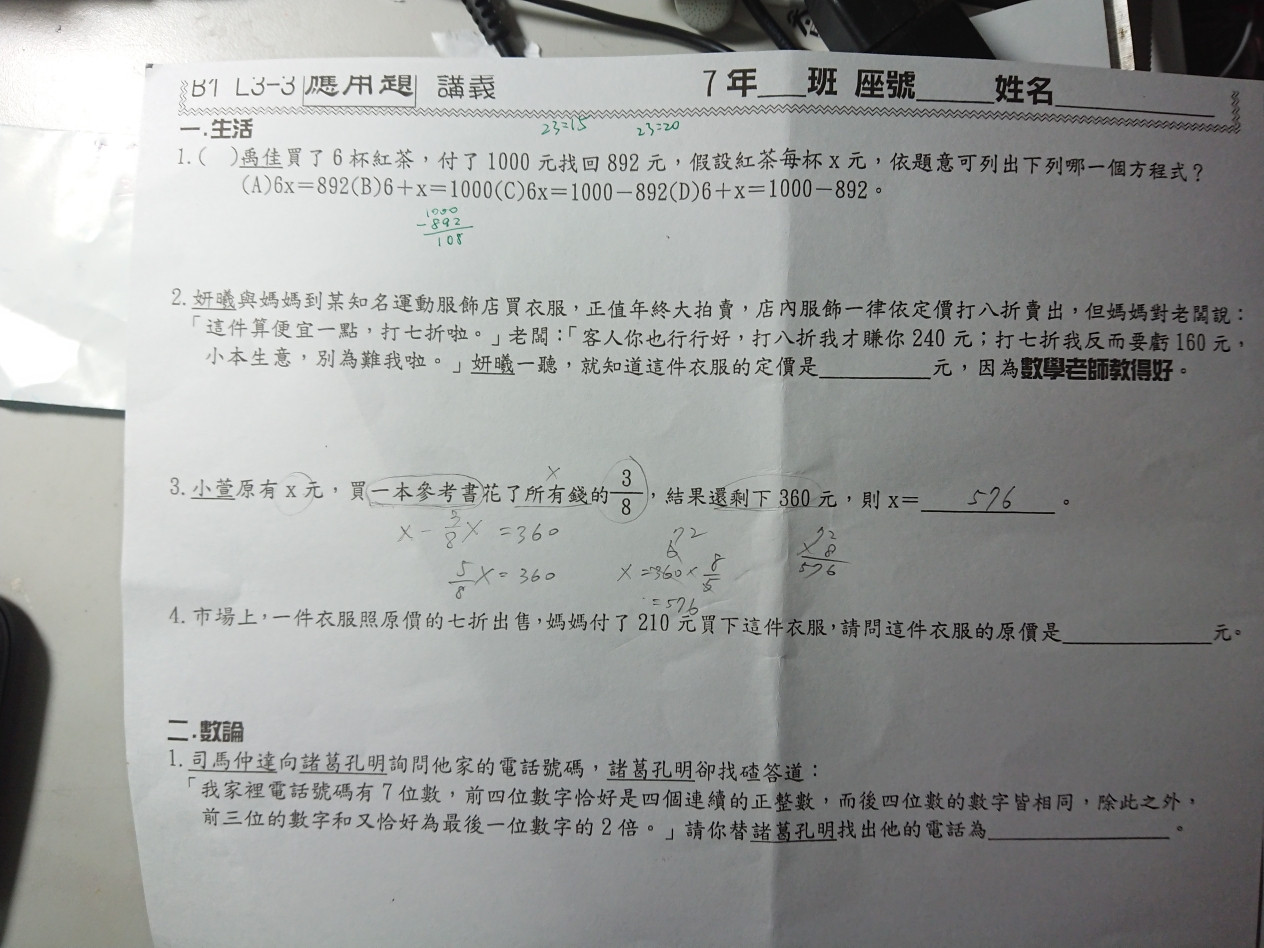 B1 L3-3 應用題 講義 7年___班 座號_____姓名__________
23=15 23=20
一.生活
1.( )禹佳買了6杯紅茶，付了1000元找回892元，假設紅茶每杯x元，依題意可列出下列哪一個方程式？
(A)6x＝892(B)6＋x＝1000(C)6x＝1000－892(D)6＋x＝1000－892。
1000
-892
108
2.妍曦與媽媽到某知名運動服飾店買衣服，正值年終大拍賣，店內服飾一律依定價打八折賣出，但媽媽對老闆說：
「這件算便宜一點，打七折啦。」老闆：「客人你也行行好，打八折我才賺你240元；打七折我反而要虧160元，
小本生意，別為難我啦。」妍曦一聽，就知道這件衣服的定價是__________元，因為數學老師教得好。
x
3.小萱原有x元，買一本參考書花了所有錢的3/8，結果還剩下360元，則x＝ 576 。
x - 3/8 x = 360
5/8 x = 360
72
x = 360 × 8/5
= 576
72
× 8
576
4.市場上，一件衣服照原價的七折出售，媽媽付了210元買下這件衣服，請問這件衣服的原價是__________元。
二.數論
1.司馬仲達向諸葛孔明詢問他家的電話號碼，諸葛孔明卻找碴答道：
「我家裡電話號碼有7位數，前四位數字恰好是四個連續的正整數，而後四位數的數字皆相同，除此之外，
前三位的數字和又恰好為最後一位數字的2倍。」請你替諸葛孔明找出他的電話為__________。